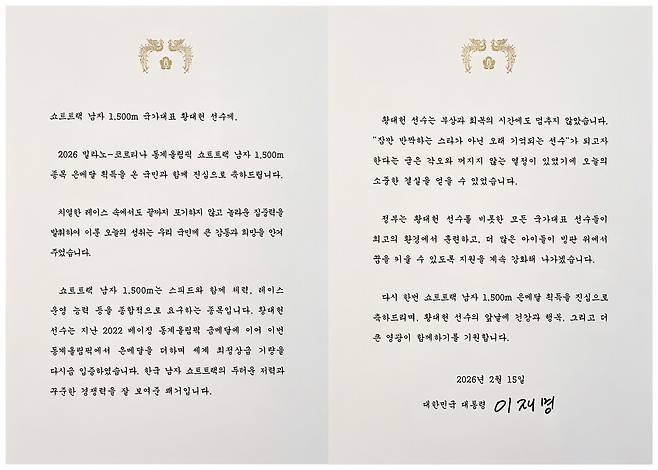 쇼트트랙 남자 1,500m 국가대표 황대헌 선수께,
2026 밀라노-코르티나 동계올림픽 쇼트트랙 남자 1,500m
종목 은메달 획득을 온 국민과 함께 진심으로 축하드립니다.
치열한 레이스 속에서도 끝까지 포기하지 않고 놀라운 집중력을
발휘하여 이룬 오늘의 성취는 우리 국민께 큰 감동과 희망을 안겨
주었습니다.
쇼트트랙 남자 1,500m는 스피드와 함께 체력, 레이스
운영 능력 등을 종합적으로 요구하는 종목입니다. 황대헌
선수는 지난 2022 베이징 동계올림픽 금메달에 이어 이번
동계올림픽에서 은메달을 더하며 세계 최정상급 기량을
다시금 입증하였습니다. 한국 남자 쇼트트랙의 두터운 저력과
꾸준한 경쟁력을 잘 보여준 쾌거입니다.
황대헌 선수는 부상과 회복의 시간에도 멈추지 않았습니다.
"잠깐 반짝하는 스타가 아닌 오래 기억되는 선수"가 되고자
한다는 굳은 각오와 꺼지지 않는 열정이 있었기에 오늘의
소중한 결실을 얻을 수 있었습니다.
정부는 황대헌 선수를 비롯한 모든 국가대표 선수들이
최고의 환경에서 훈련하고, 더 많은 아이들이 빙판 위에서
꿈을 키울 수 있도록 지원을 계속 강화해 나가겠습니다.
다시 한번 쇼트트랙 남자 1,500m 은메달 획득을 진심으로
축하드리며, 황대헌 선수의 앞날에 건강과 행복, 그리고 더
큰 영광이 함께하기를 기원합니다.
2026년 2월 15일
대한민국 대통령 이재명